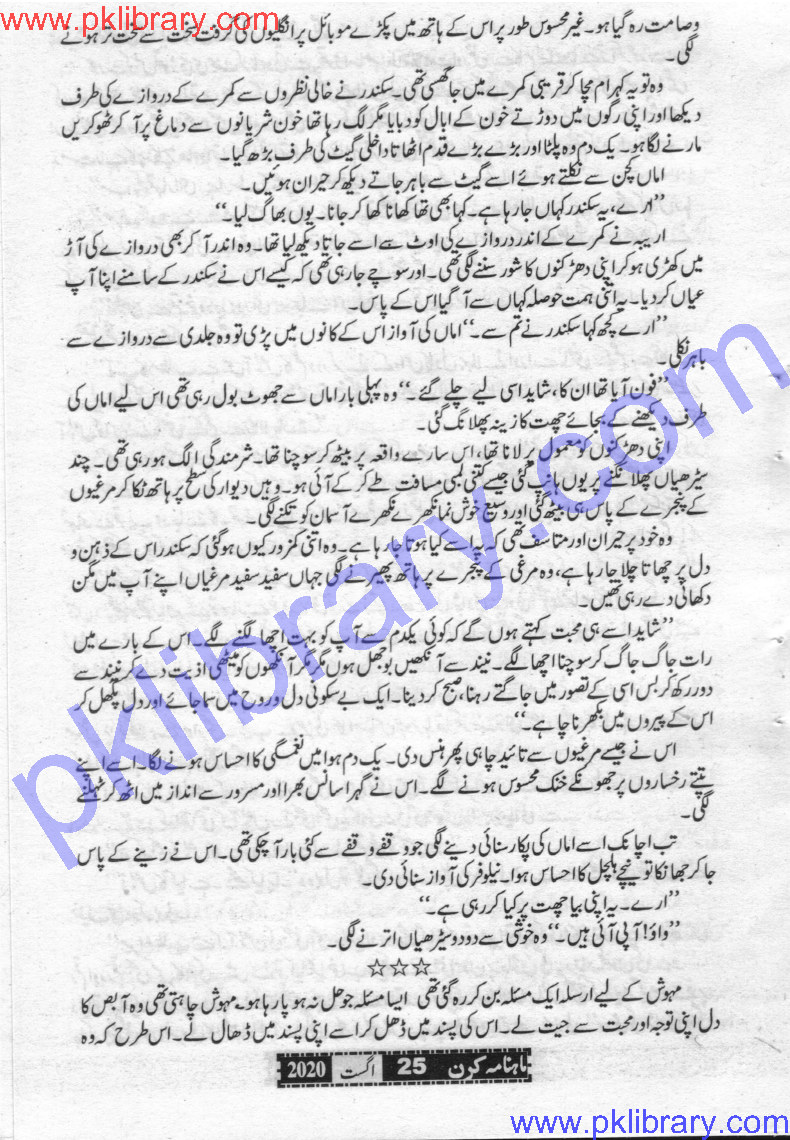 www.pklibrary.com www.pklibrary.com
وصامت رہ گیا ہو۔ غیر محسوس طور پر اس کے ہاتھ میں پکڑے موبائل پر انگلیوں کی گرفت سخت سے سخت تر ہونے
لگی۔
وہ تو یہ کہرام مچا کر قریبی کمرے میں جا گھسی تھی۔ سکندر نے خالی نظروں سے کمرے کے دروازے کی طرف
دیکھا اور اپنی رگوں میں دوڑتے خون کے ابال کو دبایا مگر لگ رہا تھا خون شریانوں سے دماغ پر آ کر ٹھوکریں
مارنے لگا ہو۔ یک دم وہ پلٹا اور بڑے بڑے قدم اٹھاتا داخلی گیٹ کی طرف بڑھ گیا۔
اماں کچن سے نکلتے ہوئے اسے گیٹ سے باہر جاتے دیکھ کر حیران ہوئیں۔
”ارے، یہ سکندر کہاں جا رہا ہے۔ کہا بھی تھا کھانا کھا کر جانا۔ یوں بھاگ لیا۔“
اریبہ نے کمرے کے اندر دروازے کی اوٹ سے اسے جاتا دیکھ لیا تھا۔ وہ اندر آ کر بھی دروازے کی آڑ
میں کھڑی ہو کر اپنی دھڑکنوں کا شور سننے لگی تھی۔ اور سوچے جا رہی تھی کہ کیسے اس نے سکندر کے سامنے اپنا آپ
عیاں کر دیا۔ یہ اتنی ہمت حوصلہ کہاں سے آ گیا اس کے پاس۔
”ارے کچھ کہا سکندر نے تم سے۔“ اماں کی آواز اس کے کانوں میں پڑی تو وہ جلدی سے دروازے سے
باہر نکلی۔
”فون آیا تھا ان کا، شاید اسی لیے چلے گئے۔“ وہ پہلی بار اماں سے جھوٹ بول رہی تھی اس لیے اماں کی
طرف دیکھنے کے بجائے چھت کا زینہ پھلانگ گئی۔
اپنی دھڑکنوں کو معمول پر لانا تھا، اس سارے واقعہ پر بیٹھ کر سوچنا تھا۔ شرمندگی الگ ہو رہی تھی۔ چند
سیڑھیاں پھلانگنے پر یوں ہانپ گئی جیسے کتنی لمبی مسافت طے کر کے آئی ہو۔ وہیں دیوار کی سطح پر ہاتھ ٹکا کر مرغیوں
کے پنجرے کے پاس ہی بیٹھ گئی اور وسیع خوش نما نکھرے نکھرے آسمان کو تکنے لگی۔
وہ خود پر حیران اور متاسف تھی کہ یہ اسے کیا ہوتا جا رہا ہے۔ وہ اتنی کمزور کیوں ہو گئی کہ سکندر اس کے ذہن و
دل پر چھاتا چلا جا رہا ہے، وہ مرغی کے پنجرے پر ہاتھ پھیرنے لگی جہاں سفید سفید مرغیاں اپنے آپ میں مگن
دکھائی دے رہی تھیں۔
”شاید اسے ہی محبت کہتے ہوں گے کہ کوئی یکدم سے آپ کو بہت اچھا لگنے لگے۔ اس کے بارے میں
رات جاگ جاگ کر سوچنا اچھا لگے۔ نیند سے آنکھیں بوجھل ہوں مگر مگر آنکھوں کو میٹھی اذیت دے کر نیند سے
دور رکھ کر بس اسی کے تصور میں جاگتے رہنا، صبح کر دینا۔ ایک بے سکونی دل و روح میں سما جائے اور دل پگھل کر
اس کے پیروں میں بکھرنا چاہے۔
اس نے جیسے مرغیوں سے تائید چاہی پھر ہنس دی۔ یک دم ہوا میں نغمگی کا احساس ہونے لگا۔ اسے اپنے
تپتے رخساروں پر جھونکے خنک محسوس ہونے لگے۔ اس نے گہرا سانس بھرا اور مسرور سے انداز میں اٹھ کر ٹہلنے
لگی۔
تب اچانک اسے اماں کی پکار سنائی دینے لگی جو وقفے وقفے سے کئی بار آ چکی تھی۔ اس نے زینے کے پاس
جا کر جھانکا تو نیچے ہلچل کا احساس ہوا۔ نیلوفر کی آواز سنائی دی۔
”ارے۔ یہ اپنی بیا چھت پر کیا کر رہی ہے۔“
”واؤ! آپی آئی ہیں۔“ وہ خوشی سے دو دو سیڑھیاں اترنے لگی۔
☆☆☆
مہوش کے لیے ارسلہ ایک مسئلہ بن کر رہ گئی تھی ایسا مسئلہ جو حل نہ ہو پا رہا ہو۔ مہوش چاہتی تھی وہ آبص کا
دل اپنی توجہ اور محبت سے جیت لے۔ اس کی پسند میں ڈھل کر اسے اپنی پسند میں ڈھال لے۔ اس طرح کہ وہ
ماہنامہ کرن 25 اگست 2020
pklibrary.com
www.pklibrary.com